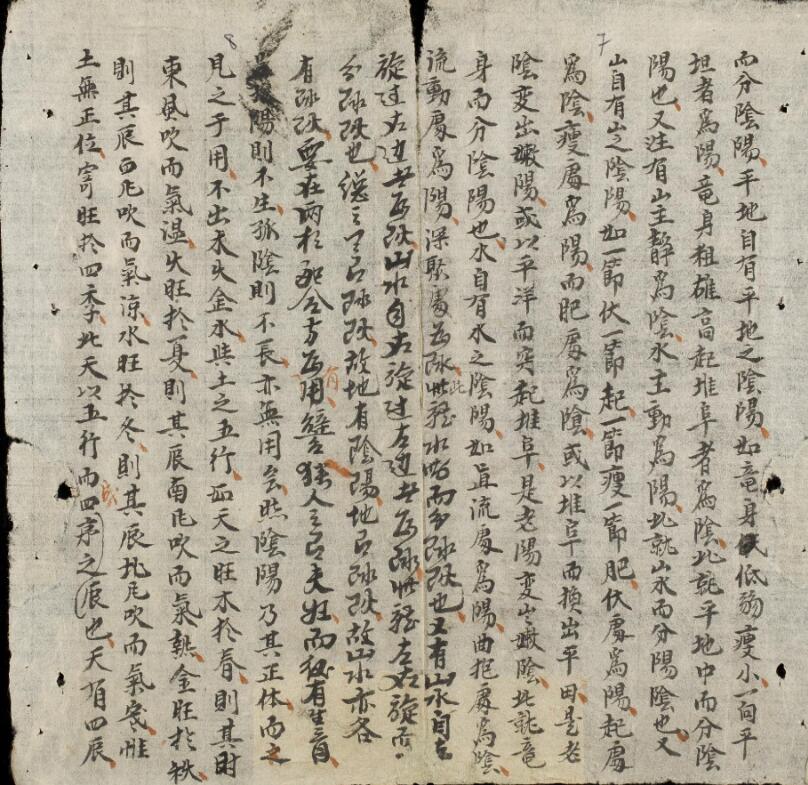 而分陰陽平地自有平地之陰陽如竜身低弱瘦小一向平
坦者爲陽竜身粗雄高起堆阜者爲陰此就平地中而分陰
陽也又註有山主靜爲陰水主動爲陽此就山水而分陽陰也又
山自有山之陰陽如一節伏一節起一節瘦一節肥伏處爲陽起處
爲陰瘦處爲陽而肥處爲陰或以堆阜而換出平田是老
陰變出嫩陽或以平洋而突起堆阜是老陽變出嫩陰此就竜
身而分陰陽也水自有水之陰陽如直流處爲陽曲抱處爲陰
流動處爲陽深聚處爲陰此水而分陰陽也又有山水自左
旋过右边山水自右旋过左边左右旋而
分也有陰陽地故山水亦各
有要在兩相配合方爲用有譬猶人之有夫妇而後有生育
陽則不生孤陰則不長亦無用矣然陰陽乃其正体而之
見之于用不出木火金水與土之五行如天之旺木於春則其時
東風吹而氣温火旺於夏則其辰南凡吹而氣熱金旺於秋
則其辰西凡吹而氣凉水旺於冬則其辰北凡吹而氣寒惟
土無正位寄旺於四季此天以五行而成四序之辰也天有四辰
7
8